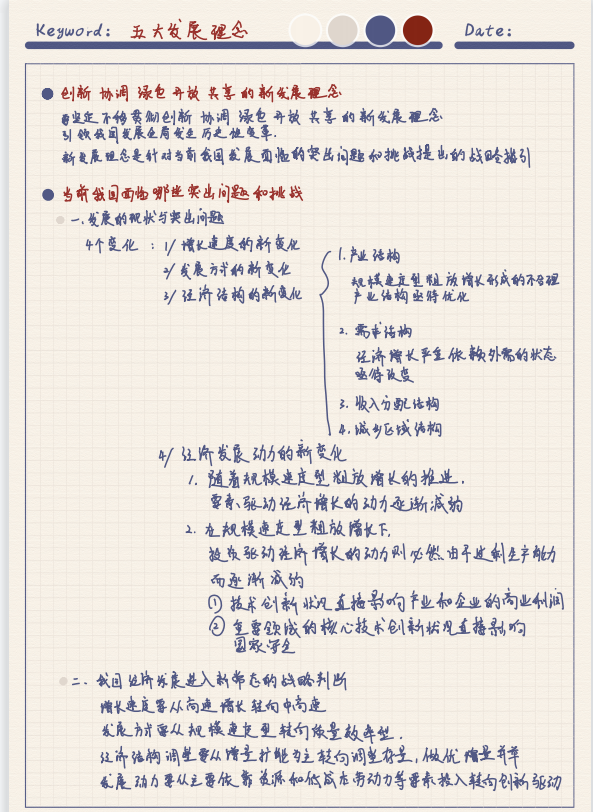 Keyword: 五大发展理念
Date:
创新 协调 绿色 开放 共享 的新发展理念
要坚定不移贯彻创新 协调 绿色 开放 共享 的新发展理念
引领我国发展全局发生历史性变革.
新发展理念是针对当前我国发展面临的突出问题和挑战提出的战略指引
当前我国面临哪些突出问题和挑战
一.发展的现状与突出问题
4个变化 : 1/ 增长速度的新变化
2/ 发展方式的新变化
3/ 经济结构的新变化
1. 产业结构
规模速度型粗放增长形成的不合理
产业结构亟待优化
2. 需求结构
经济增长严重依赖外需的状态
亟待改变
3. 收入分配结构
4. 城乡区域结构
4/ 经济发展动力的新变化
1. 随着规模速度型粗放增长的推进,
要素驱动经济增长的动力逐渐减弱
2. 在规模速度型粗放增长下,
投资驱动经济增长的动力则必然由于过剩生产能力
而逐渐减弱
① 技术创新状况直接影响产业和企业的商业利润
② 重要领域的核心技术创新状况直接影响
国家安全
二. 我国经济发展进入新常态的战略判断
增长速度要从高速增长转向中高速
发展方式要从规模速度型转向质量效率型.
经济结构调整要从增量扩能为主转向调整存量,做优增量并举
发展动力要从主要依靠资源和低成本劳动力等要素投入转向创新驱动